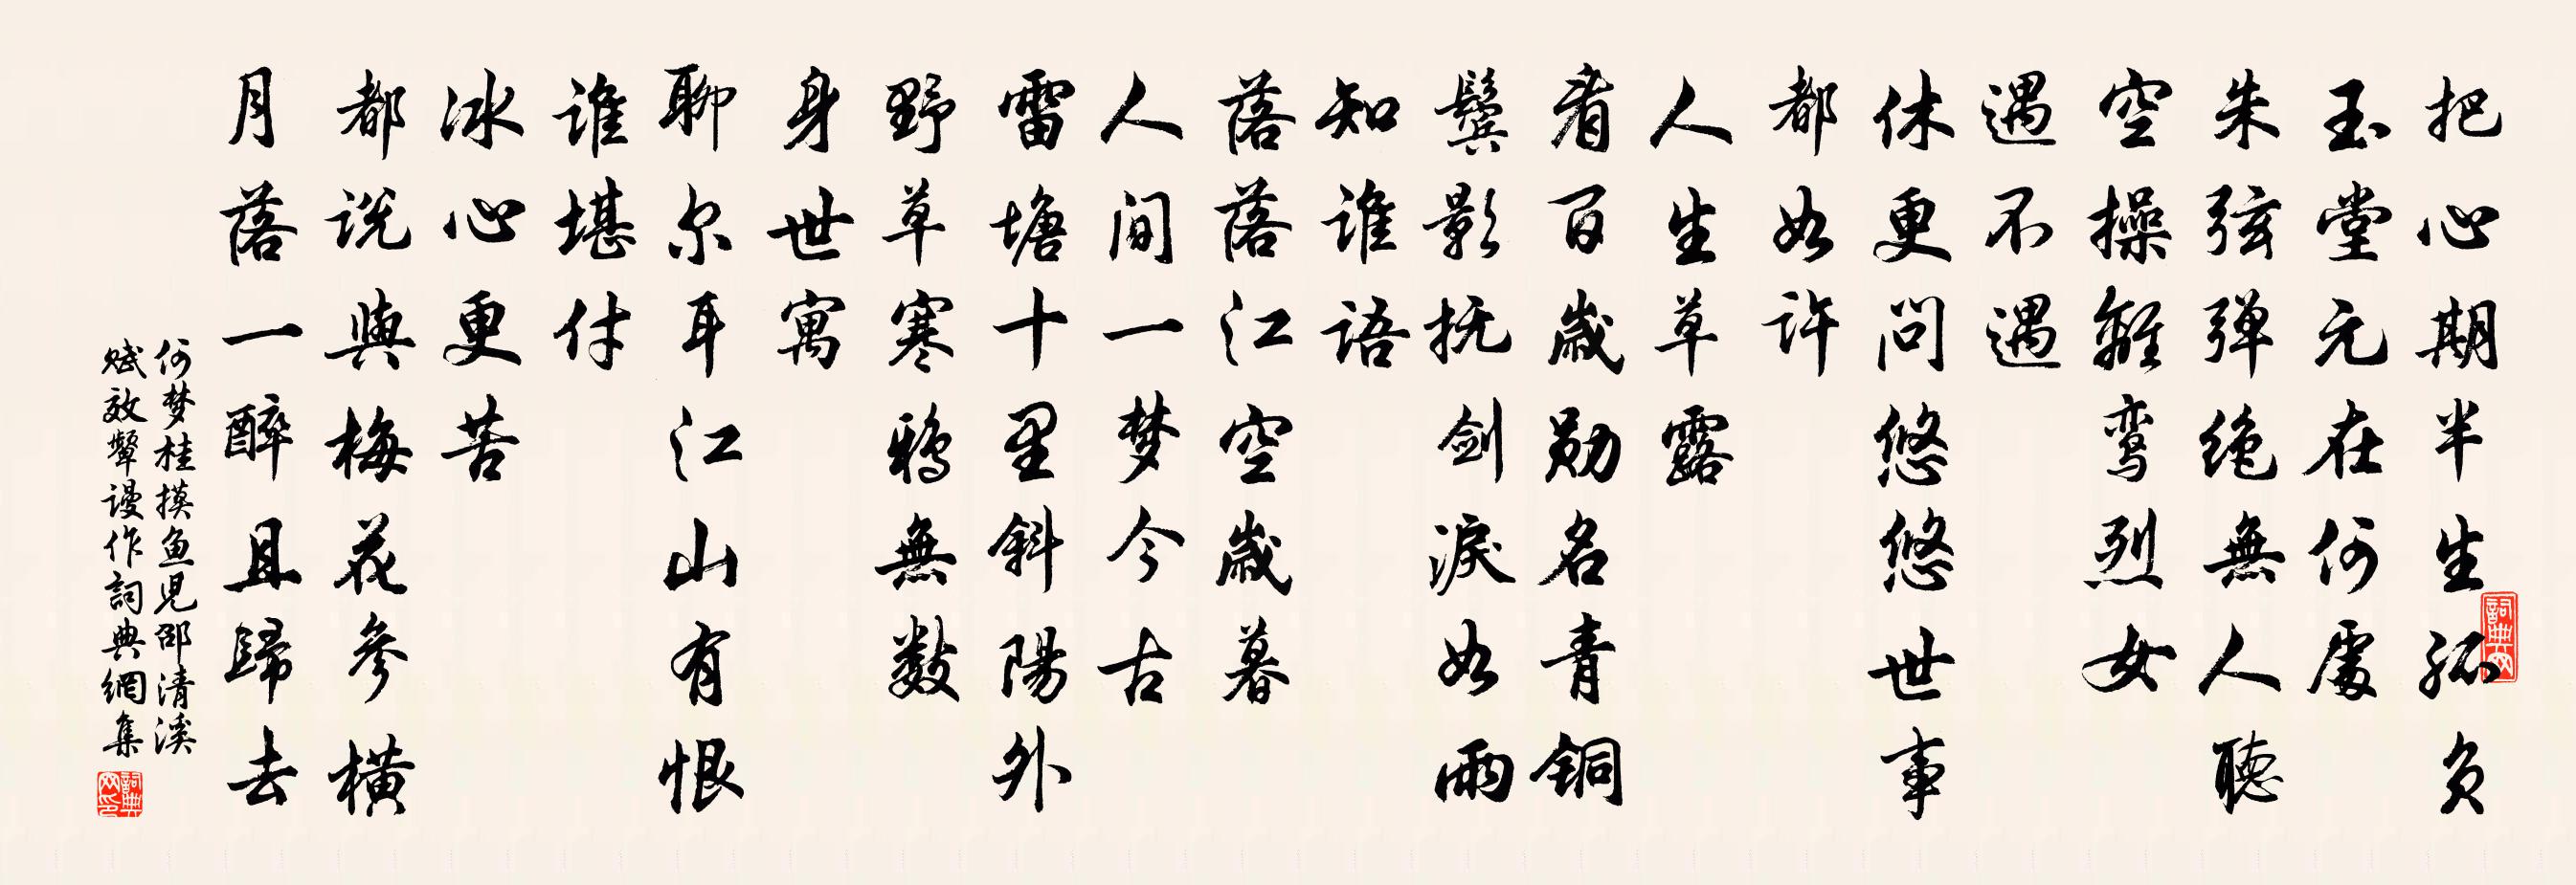 把心期半生孤负
玉堂元在何處
朱弦弹绝無人聽
空操離鸾烈女
遇不遇
休更问悠悠世事
都如许
人生草露
看百歲勋名青铜
鬓影抚剑淚如雨
知谁语
落落江空歲暮
人间一梦今古
雷塘十里斜陽外
野草寒鸦無数
身世寓
聊尔耳江山有恨
谁堪付
冰心更苦
都说與梅花参横
月落一醉且歸去
何梦桂摸鱼児邵清溪
赋效颦谩作詞典網集
詞典网
詞典网印